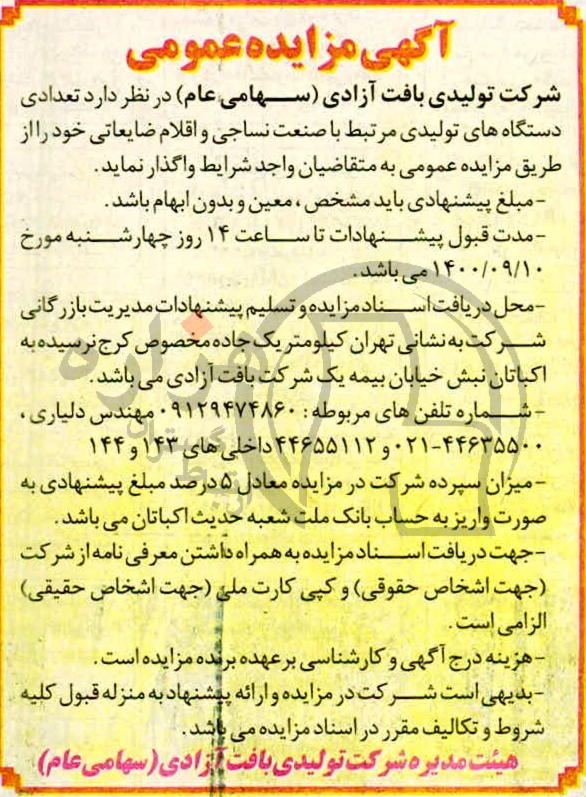 آگهی مزایده عمومی
شرکت تولیدی بافت آزادی (سهامی عام) در نظر دارد تعدادی
دستگاه های تولیدی مرتبط با صنعت نساجی و اقلام ضایعاتی خود را از
طریق مزایده عمومی به متقاضیان واجد شرایط واگذار نماید.
-مبلغ پیشنهادی باید مشخص ، معین و بدون ابهام باشد.
-مدت قبول پیشنهادات تا ساعت ۱۴ روز چهارشنبه مورخ
۱۴۰۰/۰۹/۱۰ می باشد.
-محل دریافت اسناد مزایده و تسلیم پیشنهادات مدیریت بازرگانی
شرکت به نشانی تهران کیلومتر یک جاده مخصوص کرج نرسیده به
اکباتان نبش خیابان بیمه یک شرکت بافت آزادی می باشد.
-شماره تلفن های مربوطه : ۰۹۱۲۹۴۷۴۸۶۰ مهندس دلیاری ،
۰۲۱-۴۴۶۳۵۵۰۰ و ۴۴۶۵۵۱۱۲ داخلی های ۱۴۳ و ۱۴۴
-میزان سپرده شرکت در مزایده معادل ۵ درصد مبلغ پیشنهادی به
صورت واریز به حساب بانک ملت شعبه حدیث اکباتان می باشد.
-جهت دریافت اسناد مزایده به همراه داشتن معرفی نامه از شرکت
(جهت اشخاص حقوقی) و کپی کارت ملی (جهت اشخاص حقیقی)
الزامی است.
-هزینه درج آگهی و کارشناسی بر عهده برنده مزایده است.
-بدیهی است شرکت در مزایده و ارائه پیشنهاد به منزله قبول کلیه
شروط و تکالیف مقرر در اسناد مزایده می باشد.
هیئت مدیره شرکت تولیدی بافت آزادی (سهامی عام)
هزاره